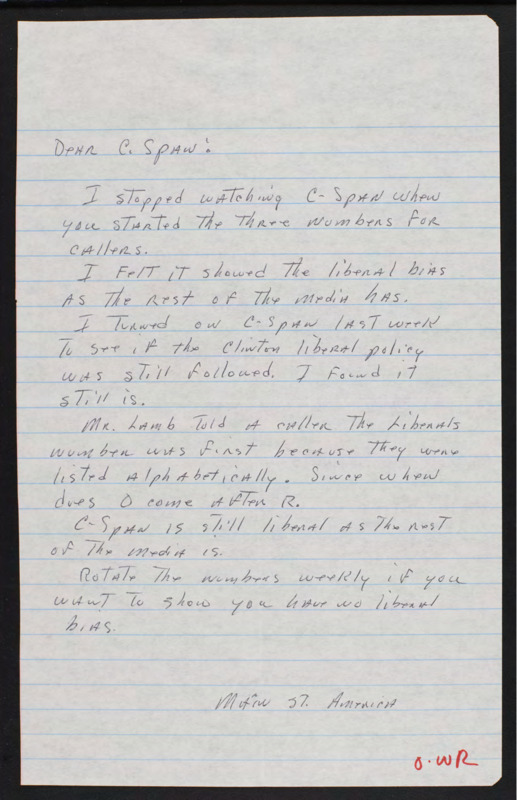 Dear C. Span:
I stopped watching C-Span when
you started the three numbers for
callers.
I felt it showed the liberal bias
as the rest of the media has.
I turned on C-Span last week
to see if the Clinton liberal policy
was still followed. I found it
still is.
Mr. Lamb told a caller the liberals
number was first because they were
listed alphabetically. Since when
does O come after R.
C-Span is still liberal as the rest
of the media is.
Rotate the numbers weekly if you
want to show you have no liberal
bias.
Main St. America
O.WR